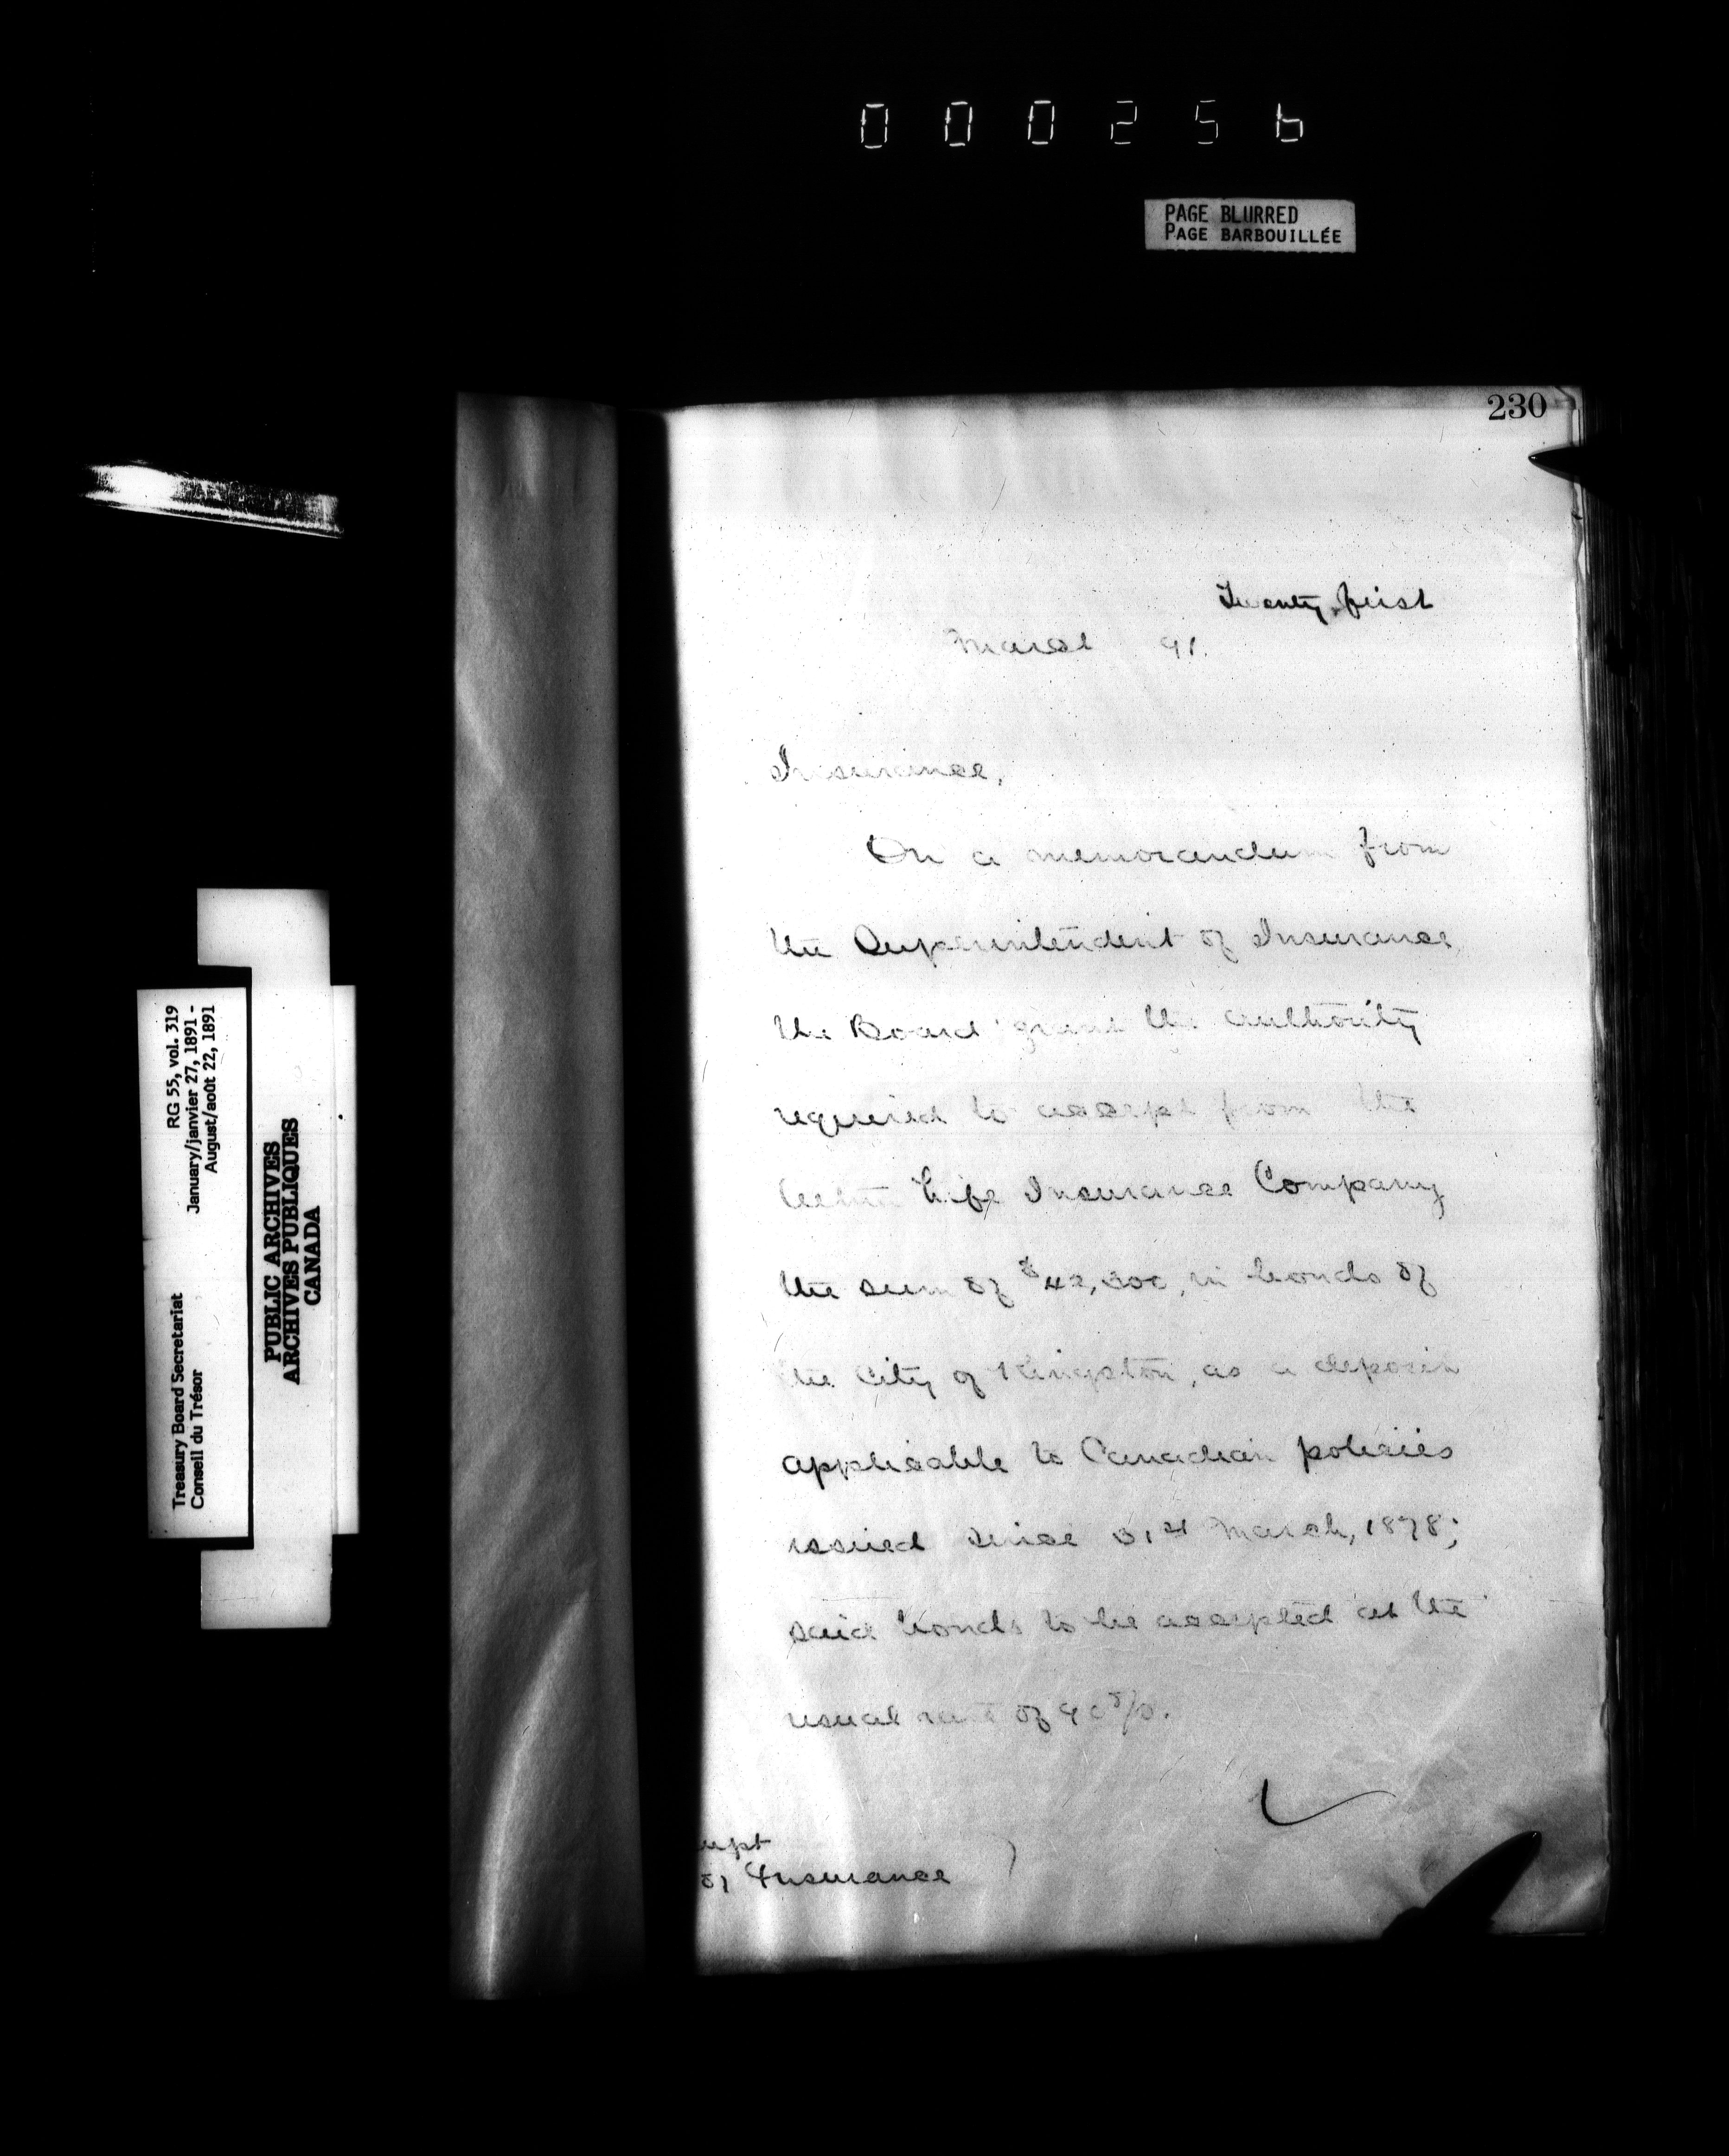 000256
PAGE BLURRED
PAGE BARBOUILLÉE
230
Twenty first
March 91.
Insurance,
On a memorandum from
the Superintendent of Insurance
the Board grant the authority
required to accept from the
Life Insurance Company
the sum of in bonds of
the City of Kingston, as a deposit
applicable to Canadian policies
issued since 31st March, 1878;
said bonds to be accepted at the
usual rate of 90%.
upt
of Insurance
RG 55, vol. 319
January/janvier 27, 1891 -
August/août 22, 1891
Treasury Board Secretariat
Conseil du Trésor
PUBLIC ARCHIVES
ARCHIVES PUBLIQUES
CANADA